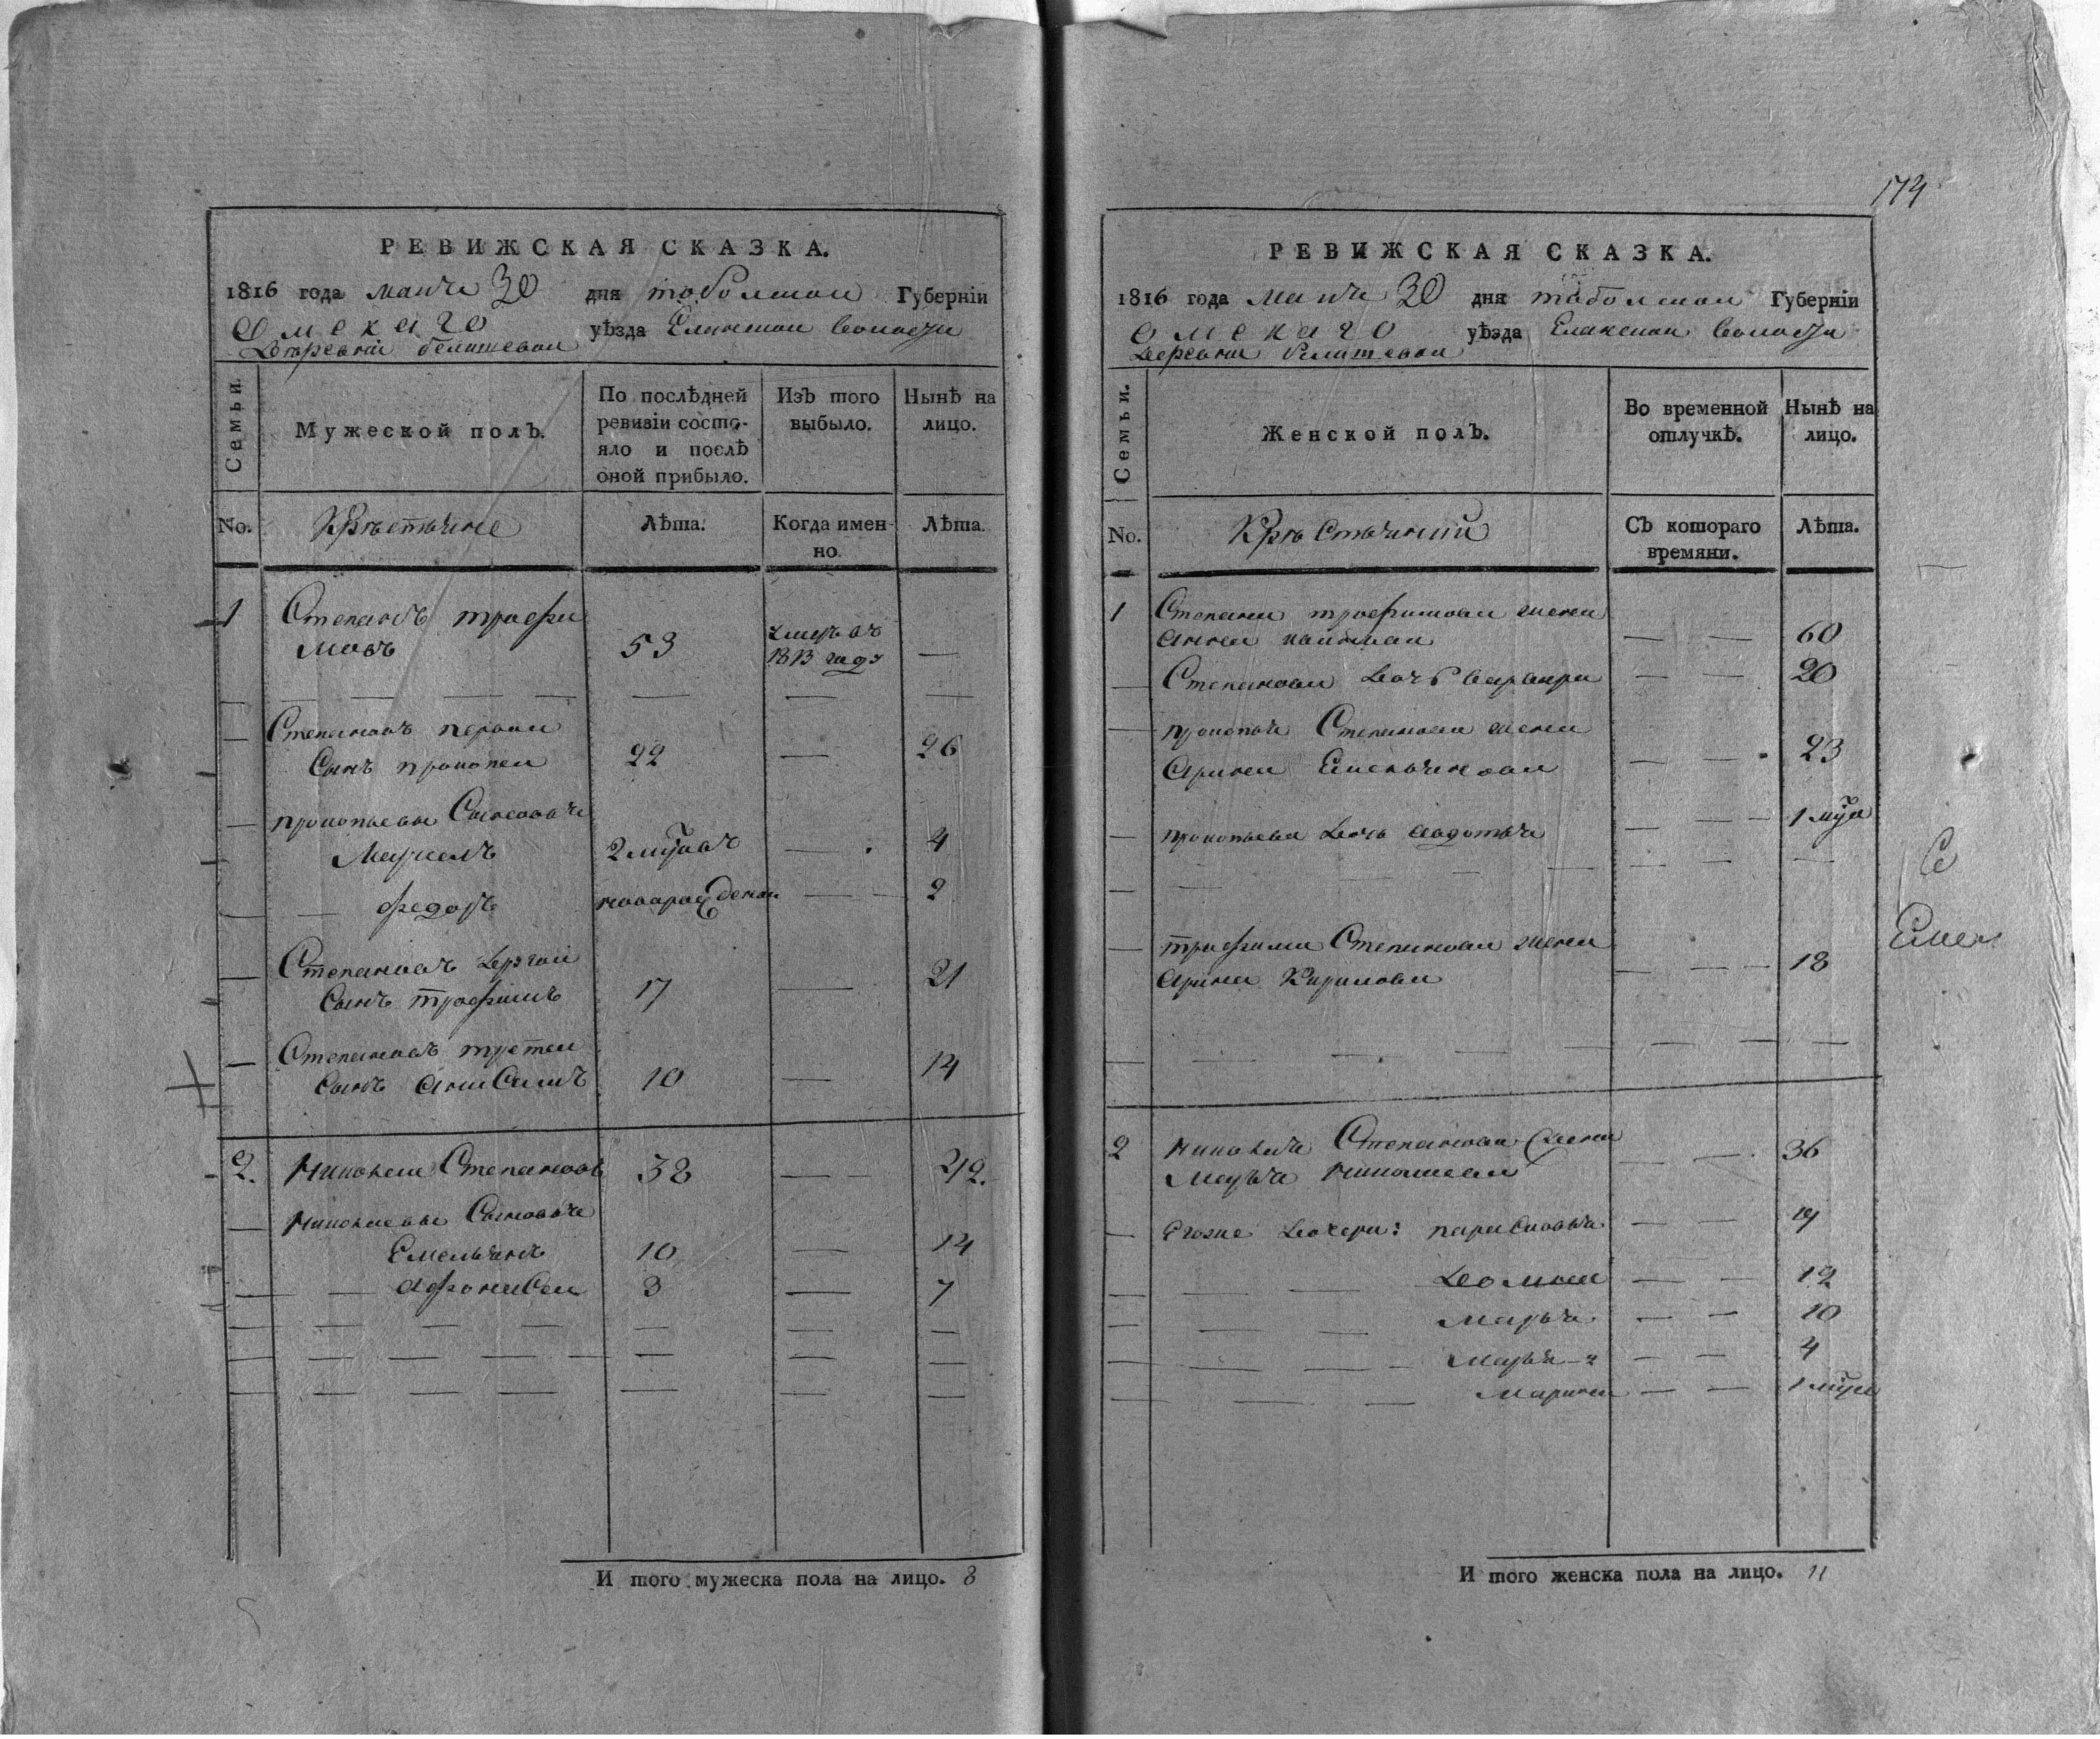 174
РЕВИЖСКАЯ СКАЗКА.
1816 года маиѧ 30 дня тоболскои Губернїи
Омскаго уѣзда Еланскои волости
Деревни
Семьи.
Мужеской полЪ.
По послѣдней ревизїи состо-
яло и послѣ
оной прибыло.
ИзЪ того выбыло.
НынѢ на лицо.
No.
Крѣстьѧне
Лѣта.
Когда имен-
но.
Лѣта.
1 Степанъ трофи
мовъ 53 умръ въ 1813 году —
Степановъ первои
сынъ прокопеи 22 — 26
прокопьевы Сыновьѧ
2 — 4
федоръ новорожденои — 2
Степановъ другои
сынъ трофимъ 17 — 21
Степановъ третеи
сынъ анисимъ 10 — 14
2. Николаи Степановъ 38 — 42.
Николаевы Сыновьѧ
Емельѧнъ 10 — 14
афонасеи 3 — 7
И того мужеска пола на лицо. 8
РЕВИЖСКАЯ СКАЗКА.
1816 года маиѧ 30 дня тоболскои Губернїи
омскаго уѣзда Еланскои волости
Деревни
Семьи.
Женской полЪ.
Во временной отлучкѢ.
НынѢ на лицо.
No.
СЪ котораго времяни.
Лѣта.
1 Степана трофимова жена
анна — — 60
Степанова дочь варвара — — 20
прокопьѧ Степанова жена
арина Емельѧнова — — 23
прокопьева дочь авдотьѧ — — 1
трофима Степанова жена
арина Кирилова — — 18
2 Николаѧ Степанова жена
марьѧ — — 36
Егоже дочери: парасковьѧ — — 19
домна — — 12
марьѧ — — 10
марьѧ — — 4
марина — — 1
И того женска пола на лицо. 11